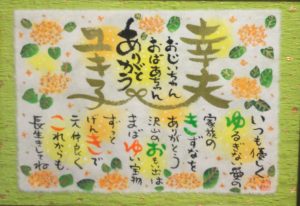 幸夫
おじいちゃん
おばあちゃん
ありがとう
ユキ子
いつも優しく
ゆるぎない愛の
家族の
きずなを
ありがとう
沢山のおもい出は
まばゆい宝物
ずっと
げんきで
仲良く
これからも
長生きしてね